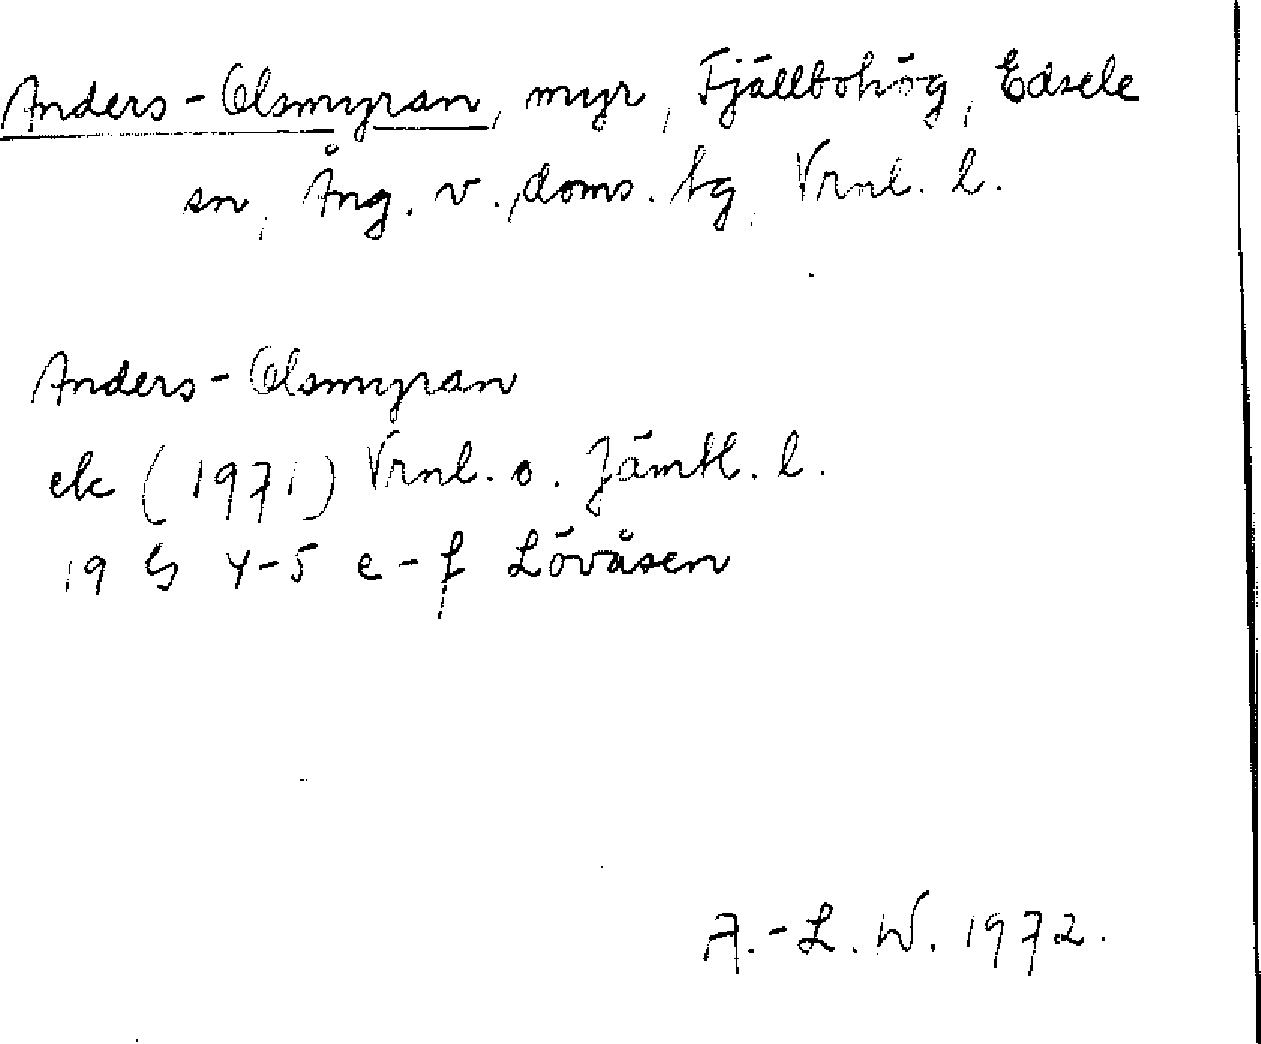 Anders-Olsmyran, myr, Fjällbohög, Edsele
sn, Ång. v., doms. tg, Vrnl. l.
Anders-Olsmyran
ek (1971) Vrnl. o. Jämtl. l.
19 G 4-5 e-f Lövåsen
A.-L. W. 1972.